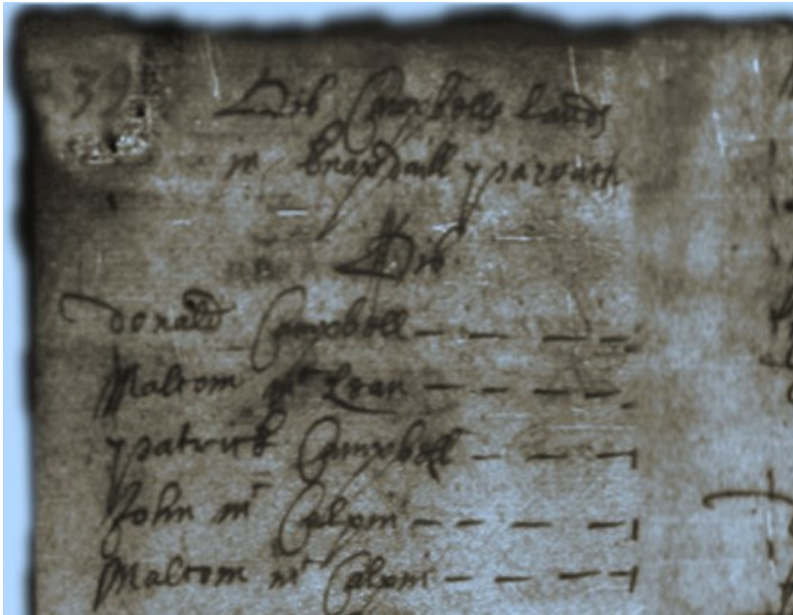 39
Dib Campbells Lands
in Craignaill parouth
Dib
Donald Campbell — — — —
Malcom mc Lean — — — —
patrick Campbell — — — 1
John mc Calpin — — — — 1
Malcom mc Calpin — — — 1